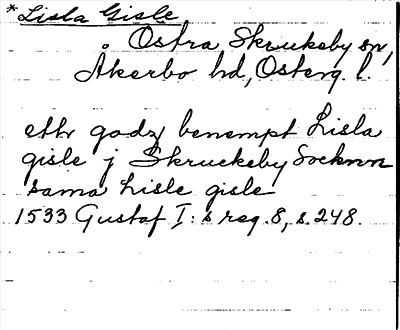 *Lisla Gisle
Östra Skrukeby sn,
Åkerbo hd, Österg. l.
ethr godz benempt Lisla
gisle j Skruckeby Socknnn
sama Lisle gisle
1533 Gustaf I:s reg. 8, s. 248.